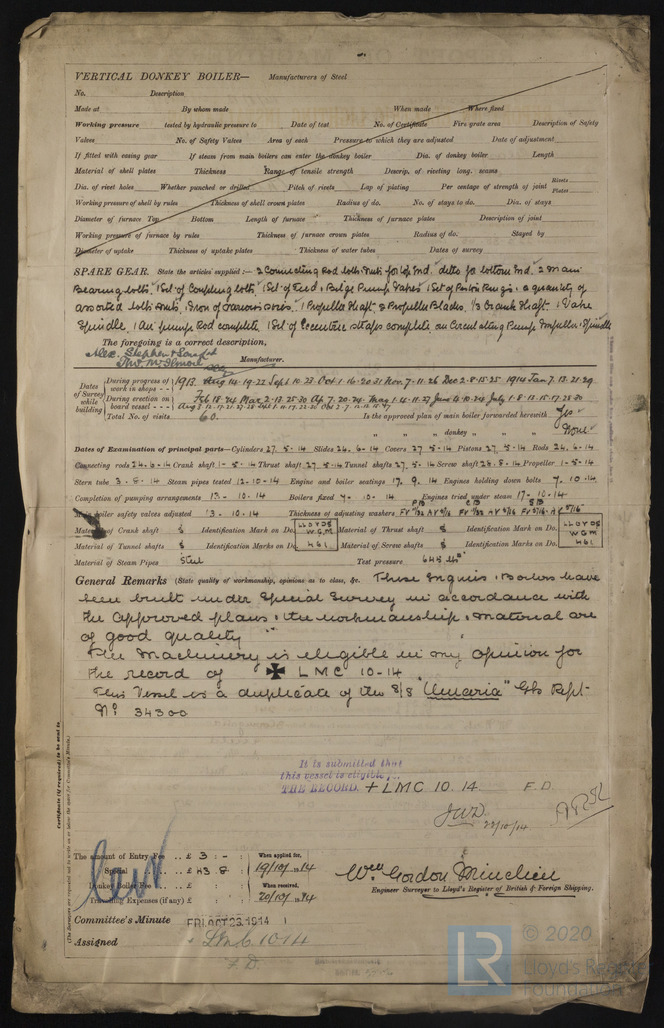 VERTICAL DONKEY BOILER— Manufacturers of Steel
No. Description
Made at By whom made When made Where fixed
Working pressure tested by hydraulic pressure to Date of test No. of Certificate Fire grate area Description of Safety
Valves No. of Safety Valves Area of each Pressure to which they are adjusted Date of adjustment
If fitted with easing gear If steam from main boilers can enter the donkey boiler Dia. of donkey boiler Length
Material of shell plates Thickness Range of tensile strength Descrip. of riveting long. seams
Dia. of rivet holes Whether punched or drilled Pitch of rivets Lap of plating Per centage of strength of joint Rivets Plates
Working pressure of shell by rules Thickness of shell crown plates Radius of do. No. of stays to do. Dia. of stays
Diameter of furnace Top Bottom Length of furnace Thickness of furnace plates Description of joint
Working pressure of furnace by rules Thickness of furnace crown plates Radius of do. Stayed by
Diameter of uptake Thickness of uptake plates Thickness of water tubes Dates of survey
SPARE GEAR. State the articles supplied :— 2 Connecting Rod bolts & nuts for top end, ditto for bottom end. 2 Main
Bearing bolts, 1 Set of Coupling bolts, 1 Set of Feed & Bilge Pump Valves 1 Set of Piston Rings. a quantity of
assorted bolts & nuts, Iron of various sizes. 1 Propeller Shaft 2 Propeller Blades, 1/3 Crank Shaft. 1 Valve
Spindle, 1 Air pump Rod complete, 1 Set of Eccentric straps complete an Circulating Pump Impeller & Spindle
The foregoing is a correct description,
Alex. Stephen & Sons Ld
Manufacturer.
Dates of Survey while building
During progress of work in shops - - 1913. Aug 14-19-22 Sept 10.23 Oct 1-16-20.31 Nov. 7-11.26 Dec 2-8-15.25 1914 Jan 7.13.21.29
During erection on board vessel - - - Feb 18.24 Mar 2.13.25.30 Ap 7.20.24. May 1.4.11.27 June 4.10.24 July 1-8-13-15.17.28.30
Total No. of visits 60. Is the approved plan of main boiler forwarded herewith Yes
" " " donkey " " " None
Dates of Examination of principal parts—Cylinders 27.5.14 Slides 24.6.14 Covers 27.5.14 Pistons 27.5.14 Rods 24.6.14
Connecting rods 24.6.14 Crank shaft 1-5-14 Thrust shaft 27.5.14 Tunnel shafts 27.5.14 Screw shaft 24.8.14 Propeller 1-5-14
Stern tube 3-8-14 Steam pipes tested 12.10.14 Engine and boiler seatings 17.9.14 Engines holding down bolts 7.10.14
Completion of pumping arrangements 13.10.14 Boilers fixed 7.10.14 Engines tried under steam 17.10.14
Main boiler safety valves adjusted 13.10.14 Thickness of adjusting washers
Material of Crank shaft S Identification Mark on Do. LLOYDS W.G.M 461 Material of Thrust shaft S Identification Mark on Do. LLOYDS WGM 461
Material of Tunnel shafts S Identification Marks on Do. Material of Screw shafts S Identification Marks on Do.
Material of Steam Pipes Steel Test pressure 645 lbs
General Remarks (State quality of workmanship, opinions as to class, &c. These Engines & Boilers have
been built under Special Survey in accordance with
the approved plans & the workmanship & material are
of good quality
The Machinery is eligible in my opinion for
the record of ✠ LMC 10-14
This Vessel is a duplicate of the S/S "Umaria" Gls Rept-
No 34300
It is submitted that
this vessel is eligible for
THE RECORD. + LMC 10.14 F.D.
JWD
22/10/14
The amount of Entry Fee .. £ 3 : - : When applied for,
Special .. £ 43.8 : 19/10/1914
Donkey Boiler Fee .. £ : : When received,
Travelling Expenses (if any) £ : : 20/10/1914
Wm Gordon
Engineer Surveyor to Lloyd's Register of British & Foreign Shipping.
Committee's Minute FRI. OCT 23. 1914
Assigned + LMC 10.14
F.D.
Certificate (if required) to be sent to
(The Surveyors are requested not to write on or below the space for Committee's Minute.)
LR © 2020
Lloyd's Register
Foundation